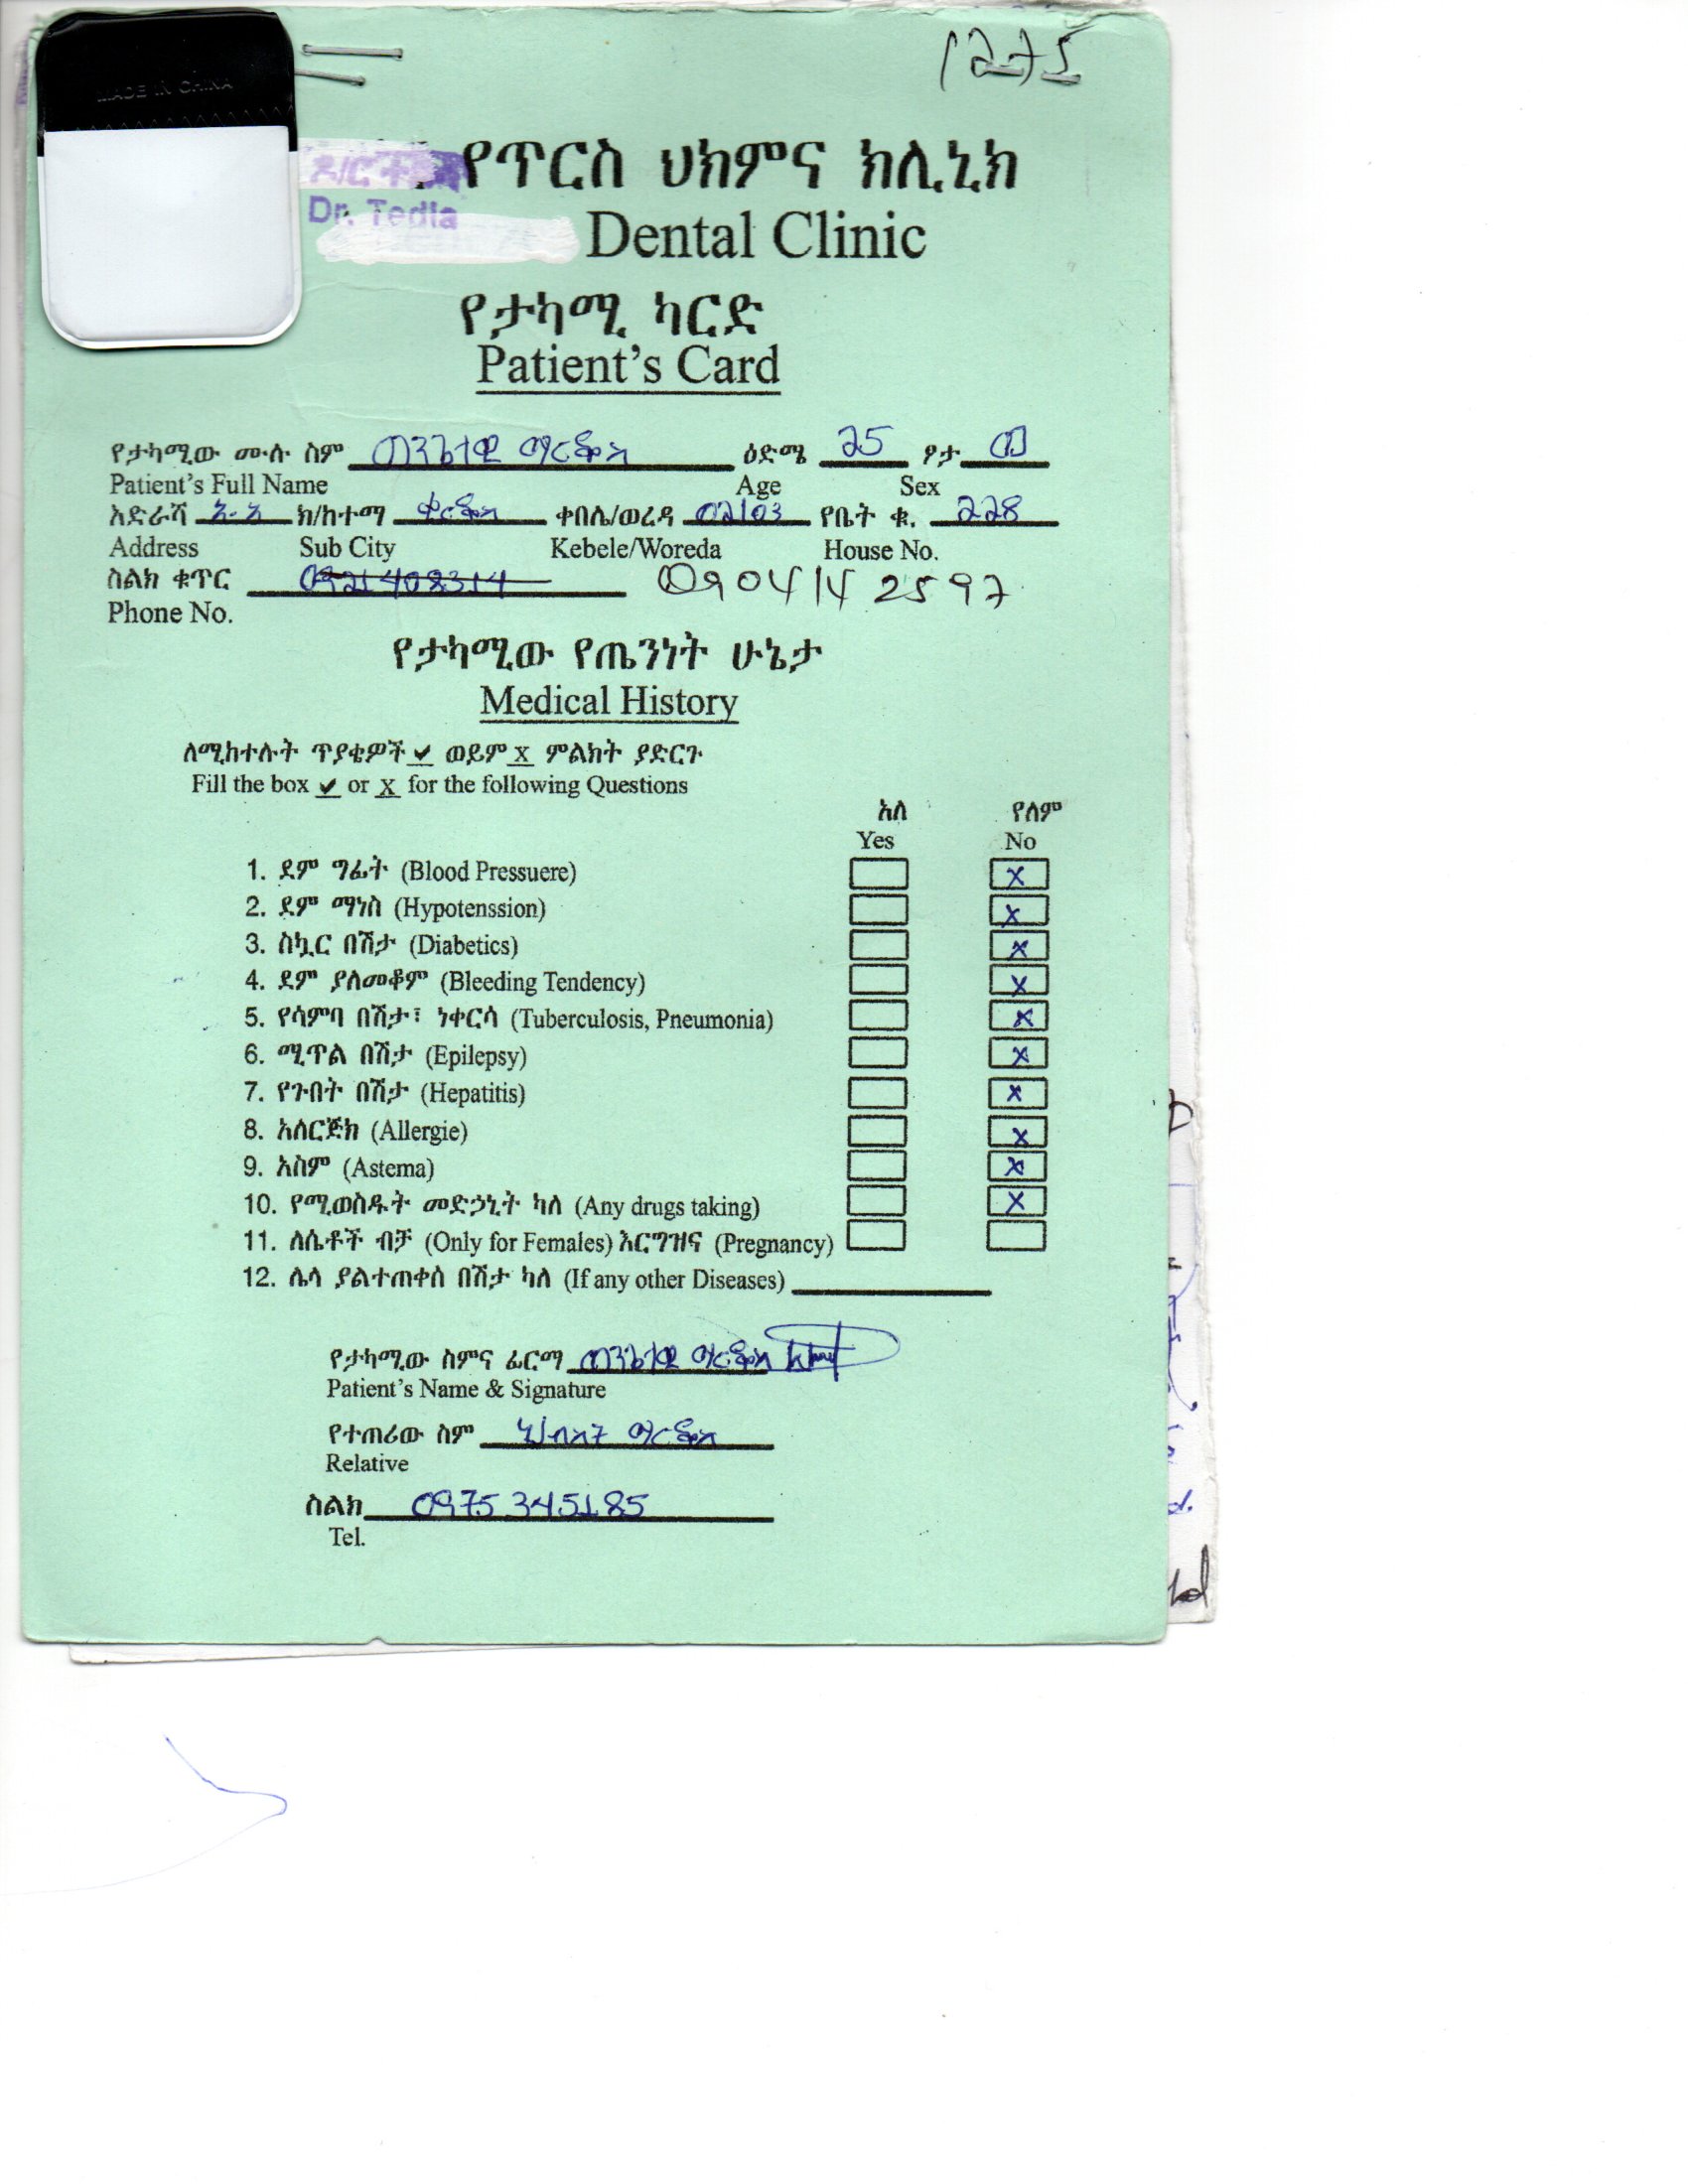 1275
MADE IN CHINA
የጥርስ ህክምና ክሊኒክ
Dr. Tedla
Dental Clinic
የታካሚ ካርድ
Patient's Card
የታካሚው ሙሉ ስም ማርቆስ ዕድሜ 25 ፆታ ወ
Patient's Full Name Age Sex
አድራሻ አ.አ ክ/ከተማ ቂርቆስ ቀበሌ/ወረዳ 02/03 የቤት ቁ. 228
Address Sub City Kebele/Woreda House No.
ስልክ ቁጥር 0921408314 0904142597
Phone No.
የታካሚው የጤንነት ሁኔታ
Medical History
ለሚከተሉት ጥያቄዎች ✓ ወይም x ምልክት ያድርጉ
Fill the box ✓ or x for the following Questions
አለ የለም
Yes No
1. ደም ግፊት (Blood Pressuere) x
2. ደም ማነስ (Hypotenssion) x
3. ስኳር በሽታ (Diabetics) x
4. ደም ያለመቆም (Bleeding Tendency) x
5. የሳምባ በሽታ፣ ነቀርሳ (Tuberculosis, Pneumonia) x
6. ሚጥል በሽታ (Epilepsy) x
7. የጉበት በሽታ (Hepatitis) x
8. አለርጅክ (Allergie) x
9. አስም (Astema) x
10. የሚወስዱት መድኃኒት ካለ (Any drugs taking) x
11. ለሴቶች ብቻ (Only for Females) እርግዝና (Pregnancy)
12. ሌላ ያልተጠቀሰ በሽታ ካለ (If any other Diseases)
የታካሚው ስምና ፊርማ ማርቆስ
Patient's Name & Signature
የተጠሪው ስም ማርቆስ
Relative
ስልክ 0975345185
Tel.